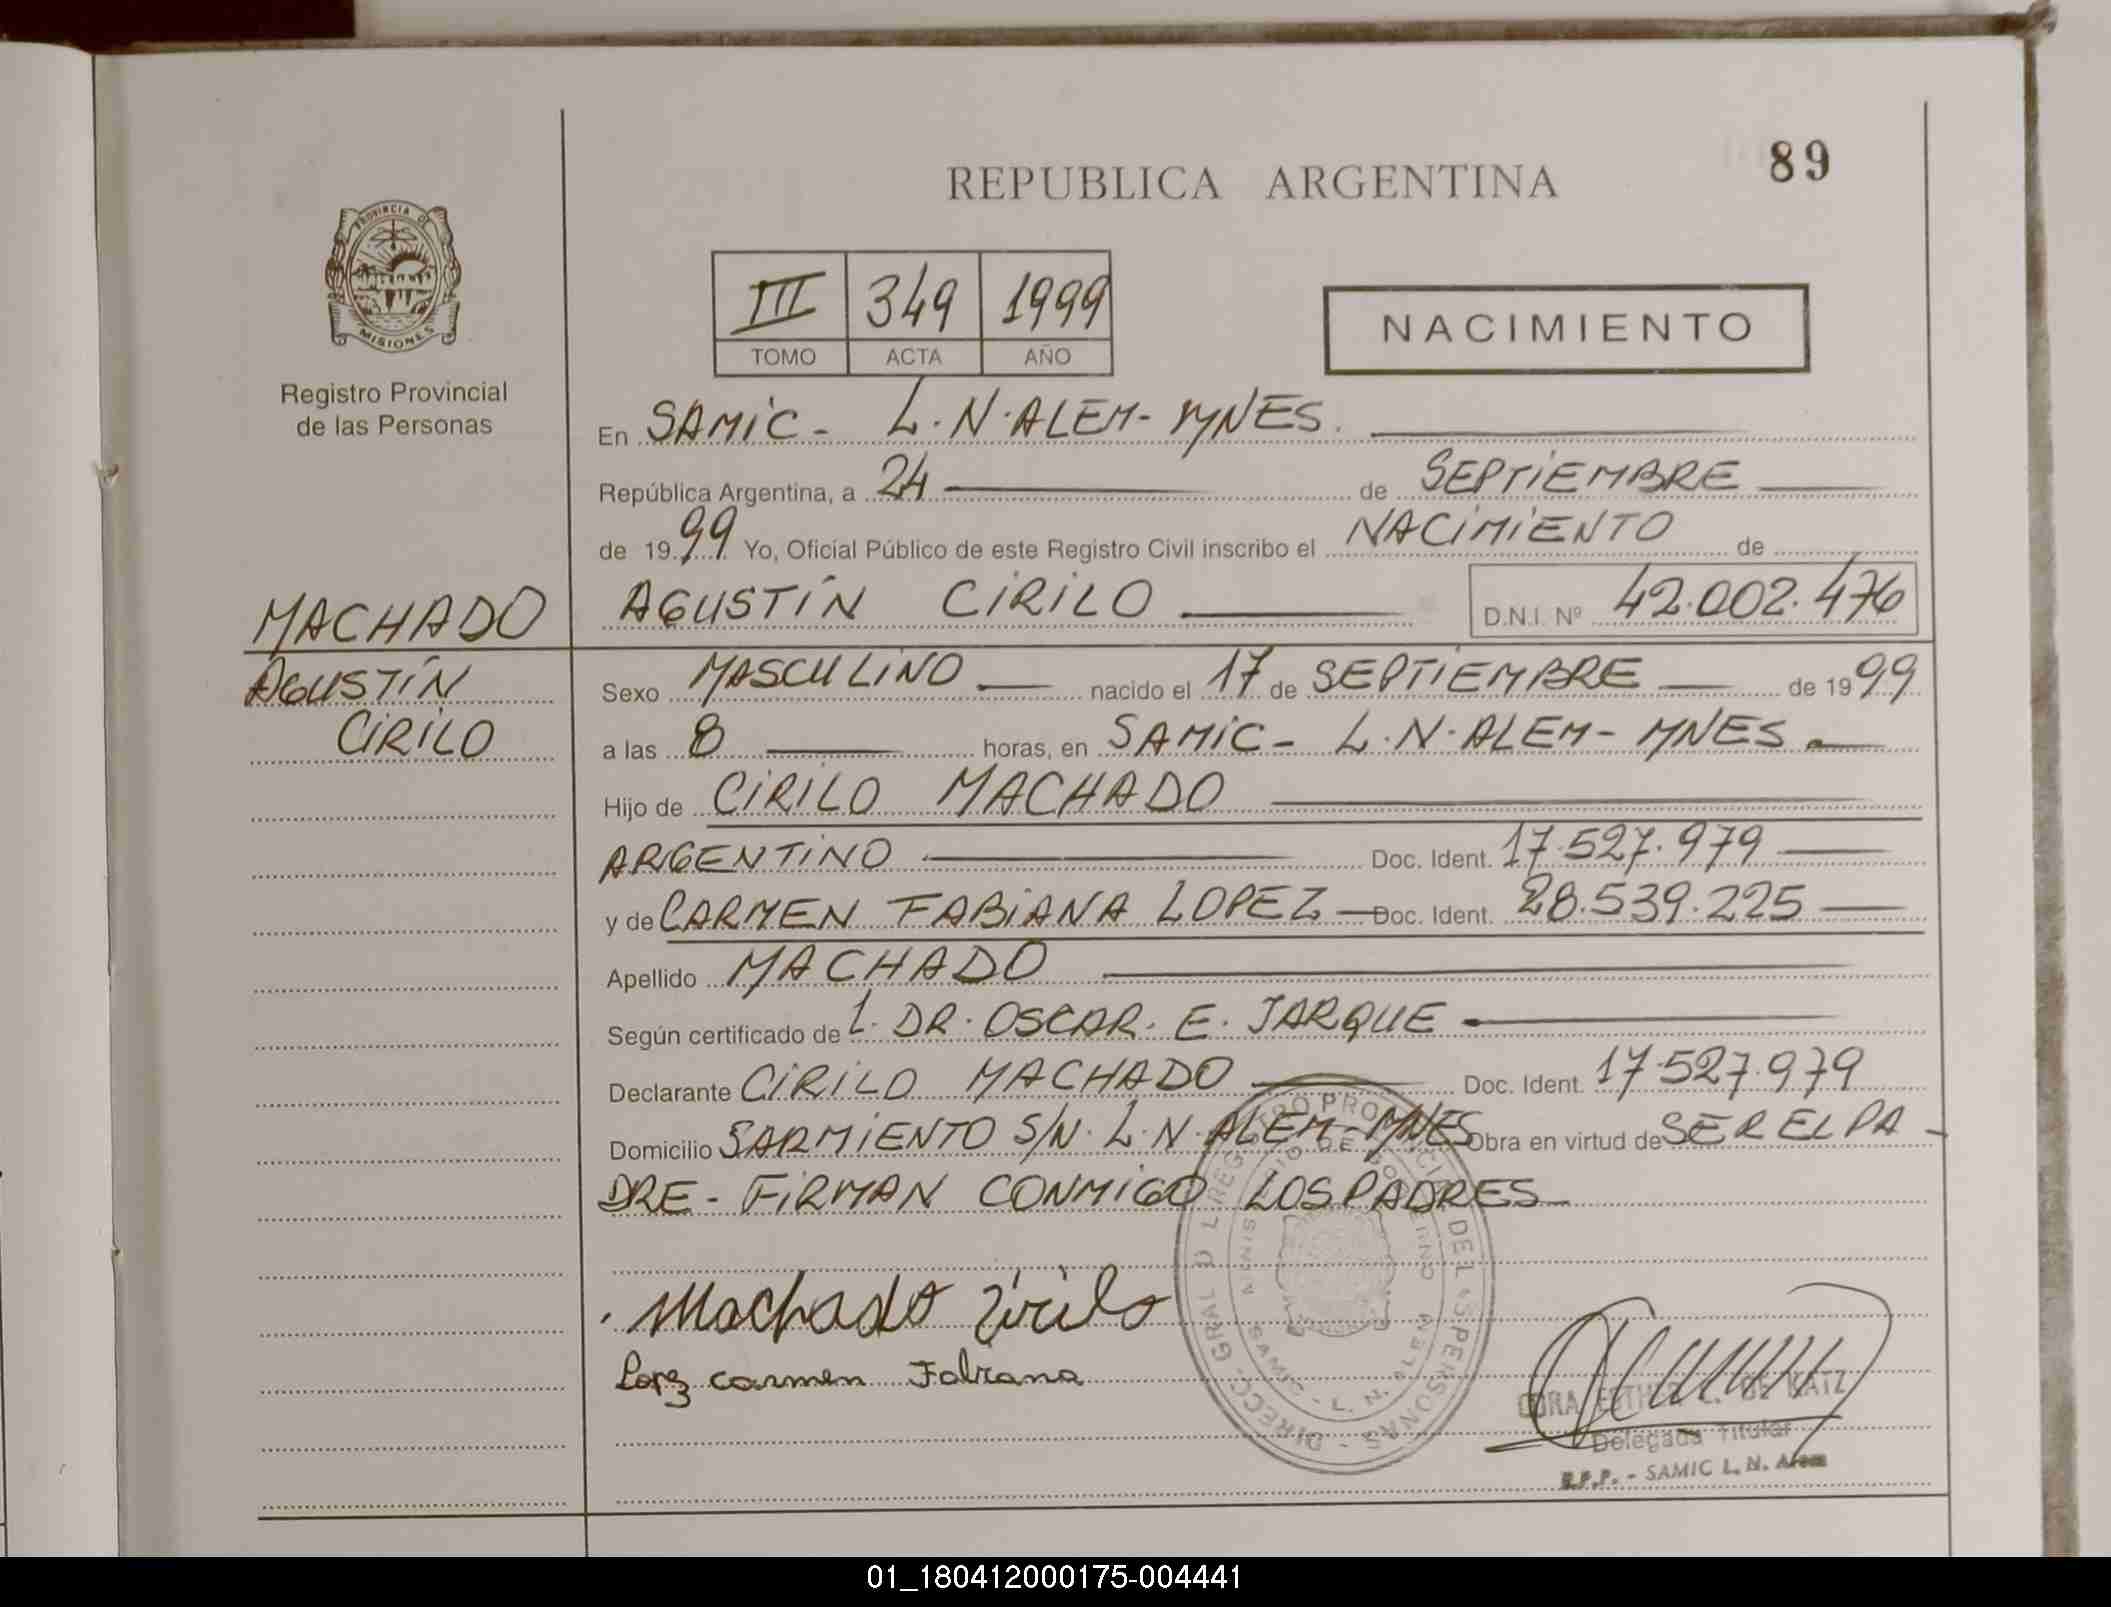 REPUBLICA ARGENTINA
89
PROVINCIA DE
MISIONES
Registro Provincial
de las Personas
III 349 1999
TOMO ACTA AÑO
NACIMIENTO
En SAMIC - L.N. ALEM - MNES.
República Argentina, a 24 de SEPTIEMBRE
de 1999 Yo, Oficial Público de este Registro Civil inscribo el NACIMIENTO de
AGUSTÍN CIRILO D.N.I. Nº 42.002.476
MACHADO
AGUSTÍN
CIRILO
Sexo MASCULINO nacido el 17 de SEPTIEMBRE de 1999
a las 8 horas, en SAMIC - L.N. ALEM - MNES.
Hijo de CIRILO MACHADO
ARGENTINO Doc. Ident. 17.527.979
y de CARMEN FABIANA LOPEZ Doc. Ident. 28.539.225
Apellido MACHADO
Según certificado de L. DR. OSCAR. E. JARQUE
Declarante CIRILO MACHADO Doc. Ident. 17.527.979
Domicilio SARMIENTO S/N. L.N. ALEM - MNES Obra en virtud de SER EL PA-
DRE - FIRMAN CONMIGO LOS PADRES
Machado Cirilo
Lopez Carmen Fabiana
DIRECC. GRAL D L REGISTRO PROVINCIAL DE LAS PERSONAS
MINISTERIO DE GOBIERNO
SAMIC - L. N. ALEM
DE KATZ
Delegada Titular
R.P.P. - SAMIC L. N. Alem
01_180412000175-004441